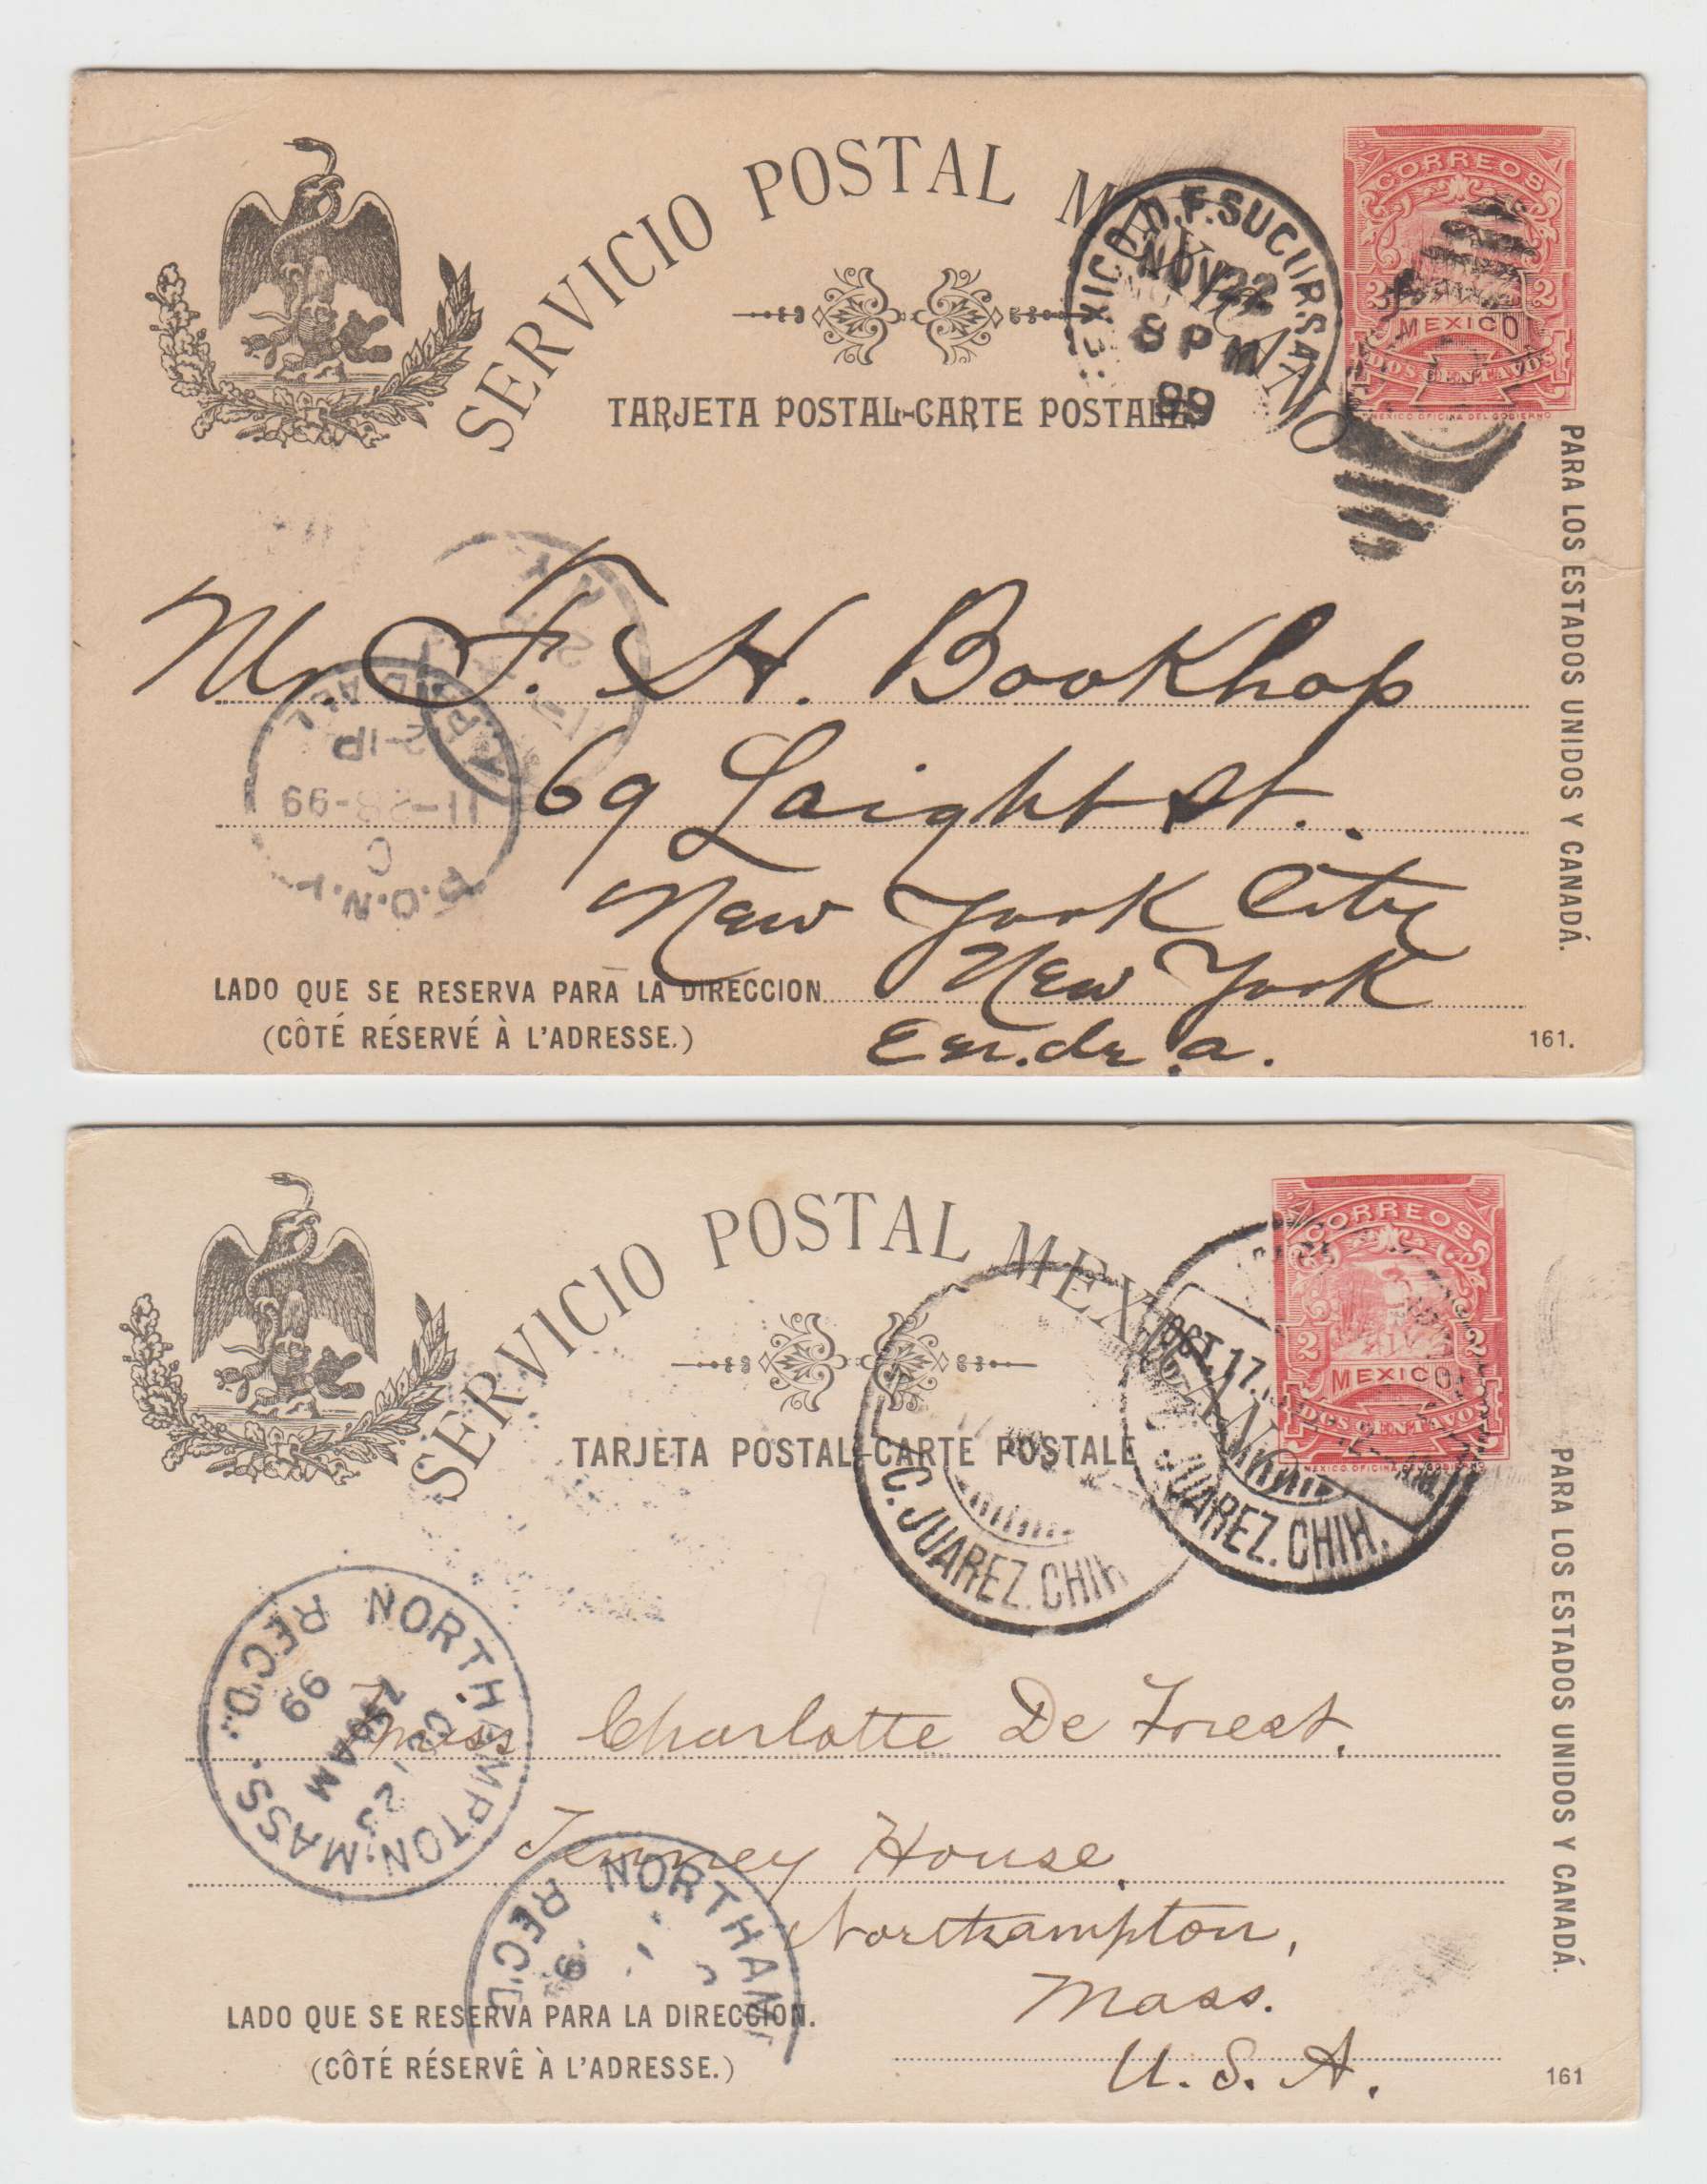 SERVICIO POSTAL MEXICANO
CORREOS
2 2
MEXICO
DOS CENTAVOS
MEXICO OFICINA DEL GOBIERNO
MEXICO.D.F.SUCURSAL
NOV 22
8 PM
99
TARJETA POSTAL-CARTE POSTALE.
PARA LOS ESTADOS UNIDOS Y CANADÁ.
Mr. F. H. Bookhop
69 Laight St.
New York City
New York
P.O.N.Y.
C
11-28-99
2-1P
LADO QUE SE RESERVA PARA LA DIRECCION
(CÔTÉ RÉSERVÉ À L'ADRESSE.)
161.
SERVICIO POSTAL MEXICANO
CORREOS
2 2
MEXICO
DOS CENTAVOS
MEXICO OFICINA DEL GOBIERNO
OCT.17.
C. JUAREZ. CHIH.
C. JUAREZ. CHIH
TARJETA POSTAL-CARTE POSTALE
PARA LOS ESTADOS UNIDOS Y CANADÁ.
NORTHAMPTON, MASS.
REC'D.
99
AM
Miss Charlotte De Forest.
Tenney House,
Northampton,
Mass.
U. S. A.
NORTHAM
REC'D
LADO QUE SE RESERVA PARA LA DIRECCION.
(CÔTÉ RÉSERVÊ À L'ADRESSE.)
161